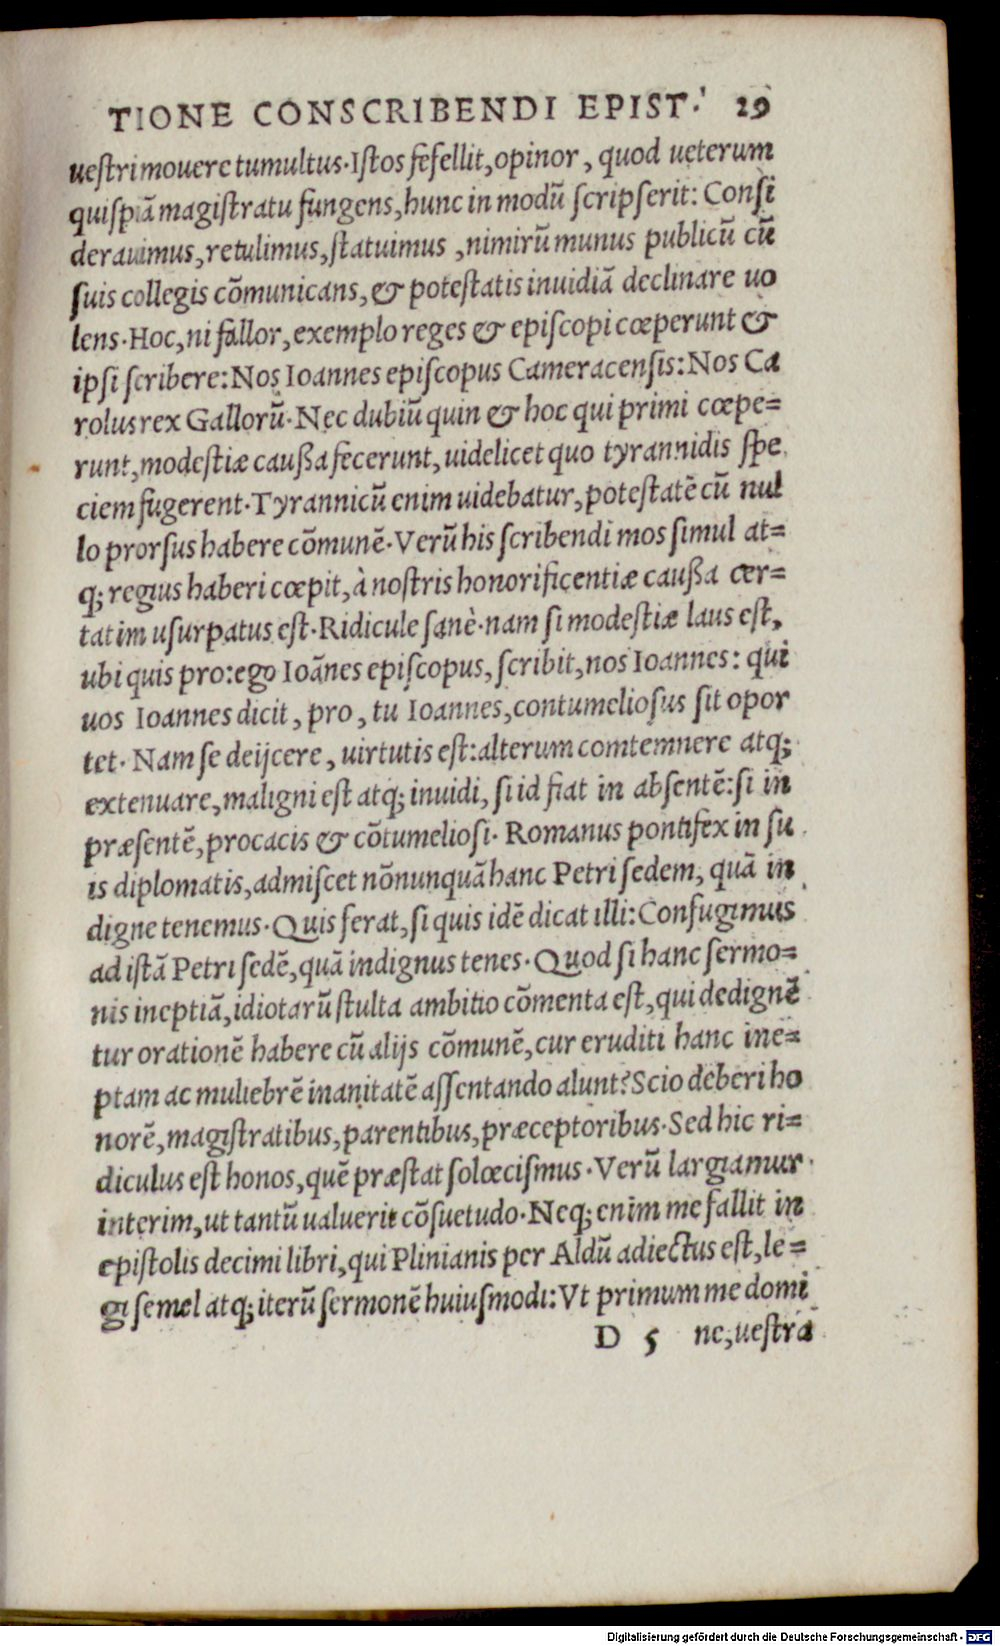 TIONE CONSCRIBENDI EPIST. 29
uestri mouere tumultus. Istos fefellit, opinor, quod ueterum
quispiã magistratu fungens, hunc in modũ scripserit: Consi
derauimus, retulimus, statuimus, nimirũ munus publicũ cũ
suis collegis cõmunicans, & potestatis inuidiã declinare uo
lens. Hoc, ni fallor, exemplo reges & episcopi cœperunt &
ipsi scribere: Nos Ioannes episcopus Cameracensis: Nos Ca
rolus rex Gallorũ. Nec dubiũ quin & hoc qui primi cœpe=
runt, modestiæ caußa fecerunt, uidelicet quo tyrannidis spe
ciem fugerent. Tyrannicũ enim uidebatur, potestatẽ cũ nul
lo prorsus habere cõmunẽ. Verũ his scribendi mos simul at=
q; regius haberi cœpit, à nostris honorificentiæ caußa cer=
tatim usurpatus est. Ridicule sanè. nam si modestiæ laus est,
ubi quis pro: ego Ioãnes episcopus, scribit, nos Ioannes: qui
uos Ioannes dicit, pro, tu Ioannes, contumeliosus sit opor
tet. Nam se deijcere, uirtutis est: alterum comtemnere atq;
extenuare, maligni est atq; inuidi, si id fiat in absentẽ: si in
præsentẽ, procacis & cõtumeliosi. Romanus pontifex in su
is diplomatis, admiscet nõnunquã hanc Petri sedem, quã in
digne tenemus. Quis ferat, si quis idẽ dicat illi: Confugimus
ad istã Petri sedẽ, quã indignus tenes. Quod si hanc sermo=
nis ineptiã, idiotarũ stulta ambitio cõmenta est, qui dedignẽ
tur orationẽ habere cũ alijs cõmunẽ, cur eruditi hanc ine=
ptam ac muliebrẽ inanitatẽ assentando alunt? Scio deberi ho
norẽ, magistratibus, parentibus, præceptoribus. Sed hic ri=
diculus est honos, quẽ præstat solœcismus. Verũ largiamur
interim, ut tantũ ualuerit cõsuetudo. Neq; enim me fallit in
epistolis decimi libri, qui Plinianis per Aldũ adiectus est, le=
gi semel atq; iterũ sermonẽ huiusmodi: Vt primum me domi
D 5 ne, uestra
Digitalisierung gefördert durch die Deutsche Forschungsgemeinschaft - DFG